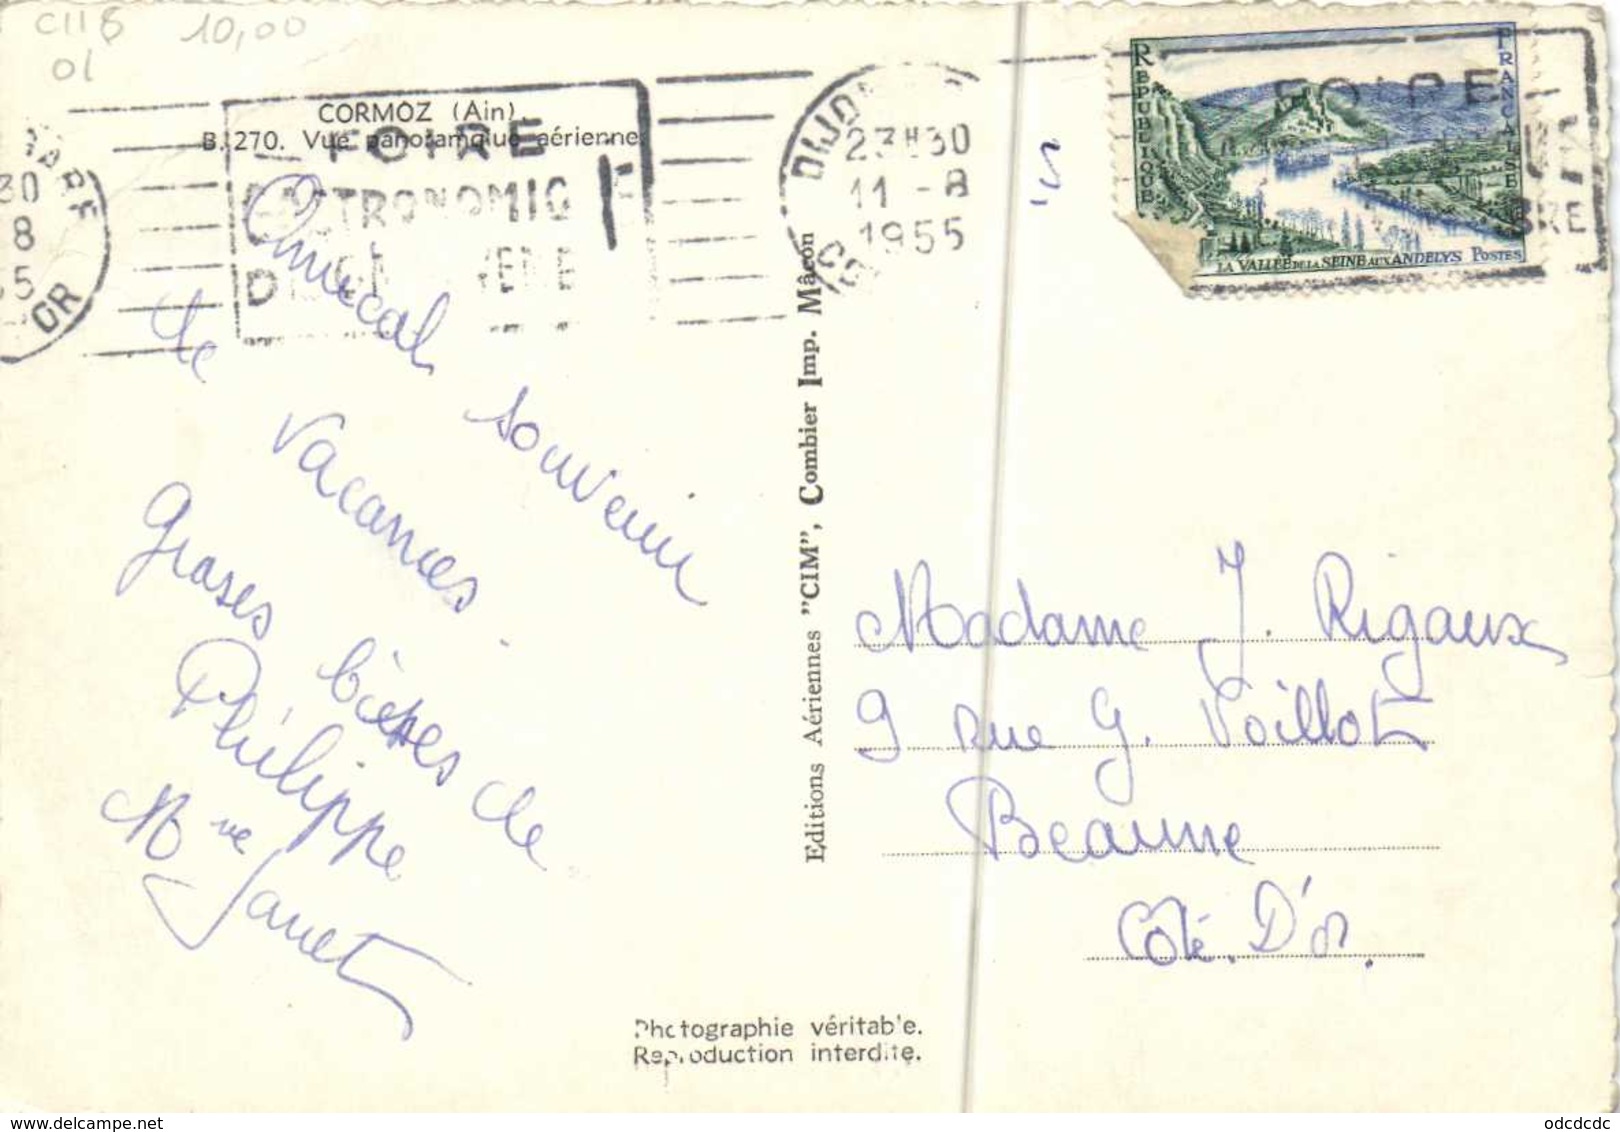 C118 10,00
01
CORMOZ (Ain)
B. 270. Vue panoramique aérienne
FOIRE
GASTRONOMIQ
DIJON
23H30
11 - 8
1955
OR
REPUBLIQUE FRANCAISE
LA VALLÉE DE LA SEINE AUX ANDELYS POSTES
FOIRE
Amical souvenir
de vacances.
Grosses bises de
Philippe
Mme Janet
Editions Aériennes "CIM", Combier Imp. Mâcon
Madame J. Rigaux
9 rue G. Voillot
Beaune
Côté. D'or.
Photographie véritable.
Reproduction interdite.
odcdcdc